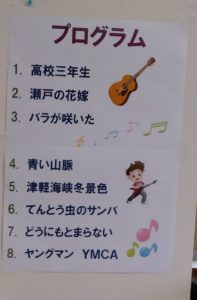 プログラム
1. 高校三年生
2. 瀬戸の花嫁
3. バラが咲いた
4. 青い山脈
5. 津軽海峡冬景色
6. てんとう虫のサンバ
7. どうにもとまらない
8. ヤングマン YMCA